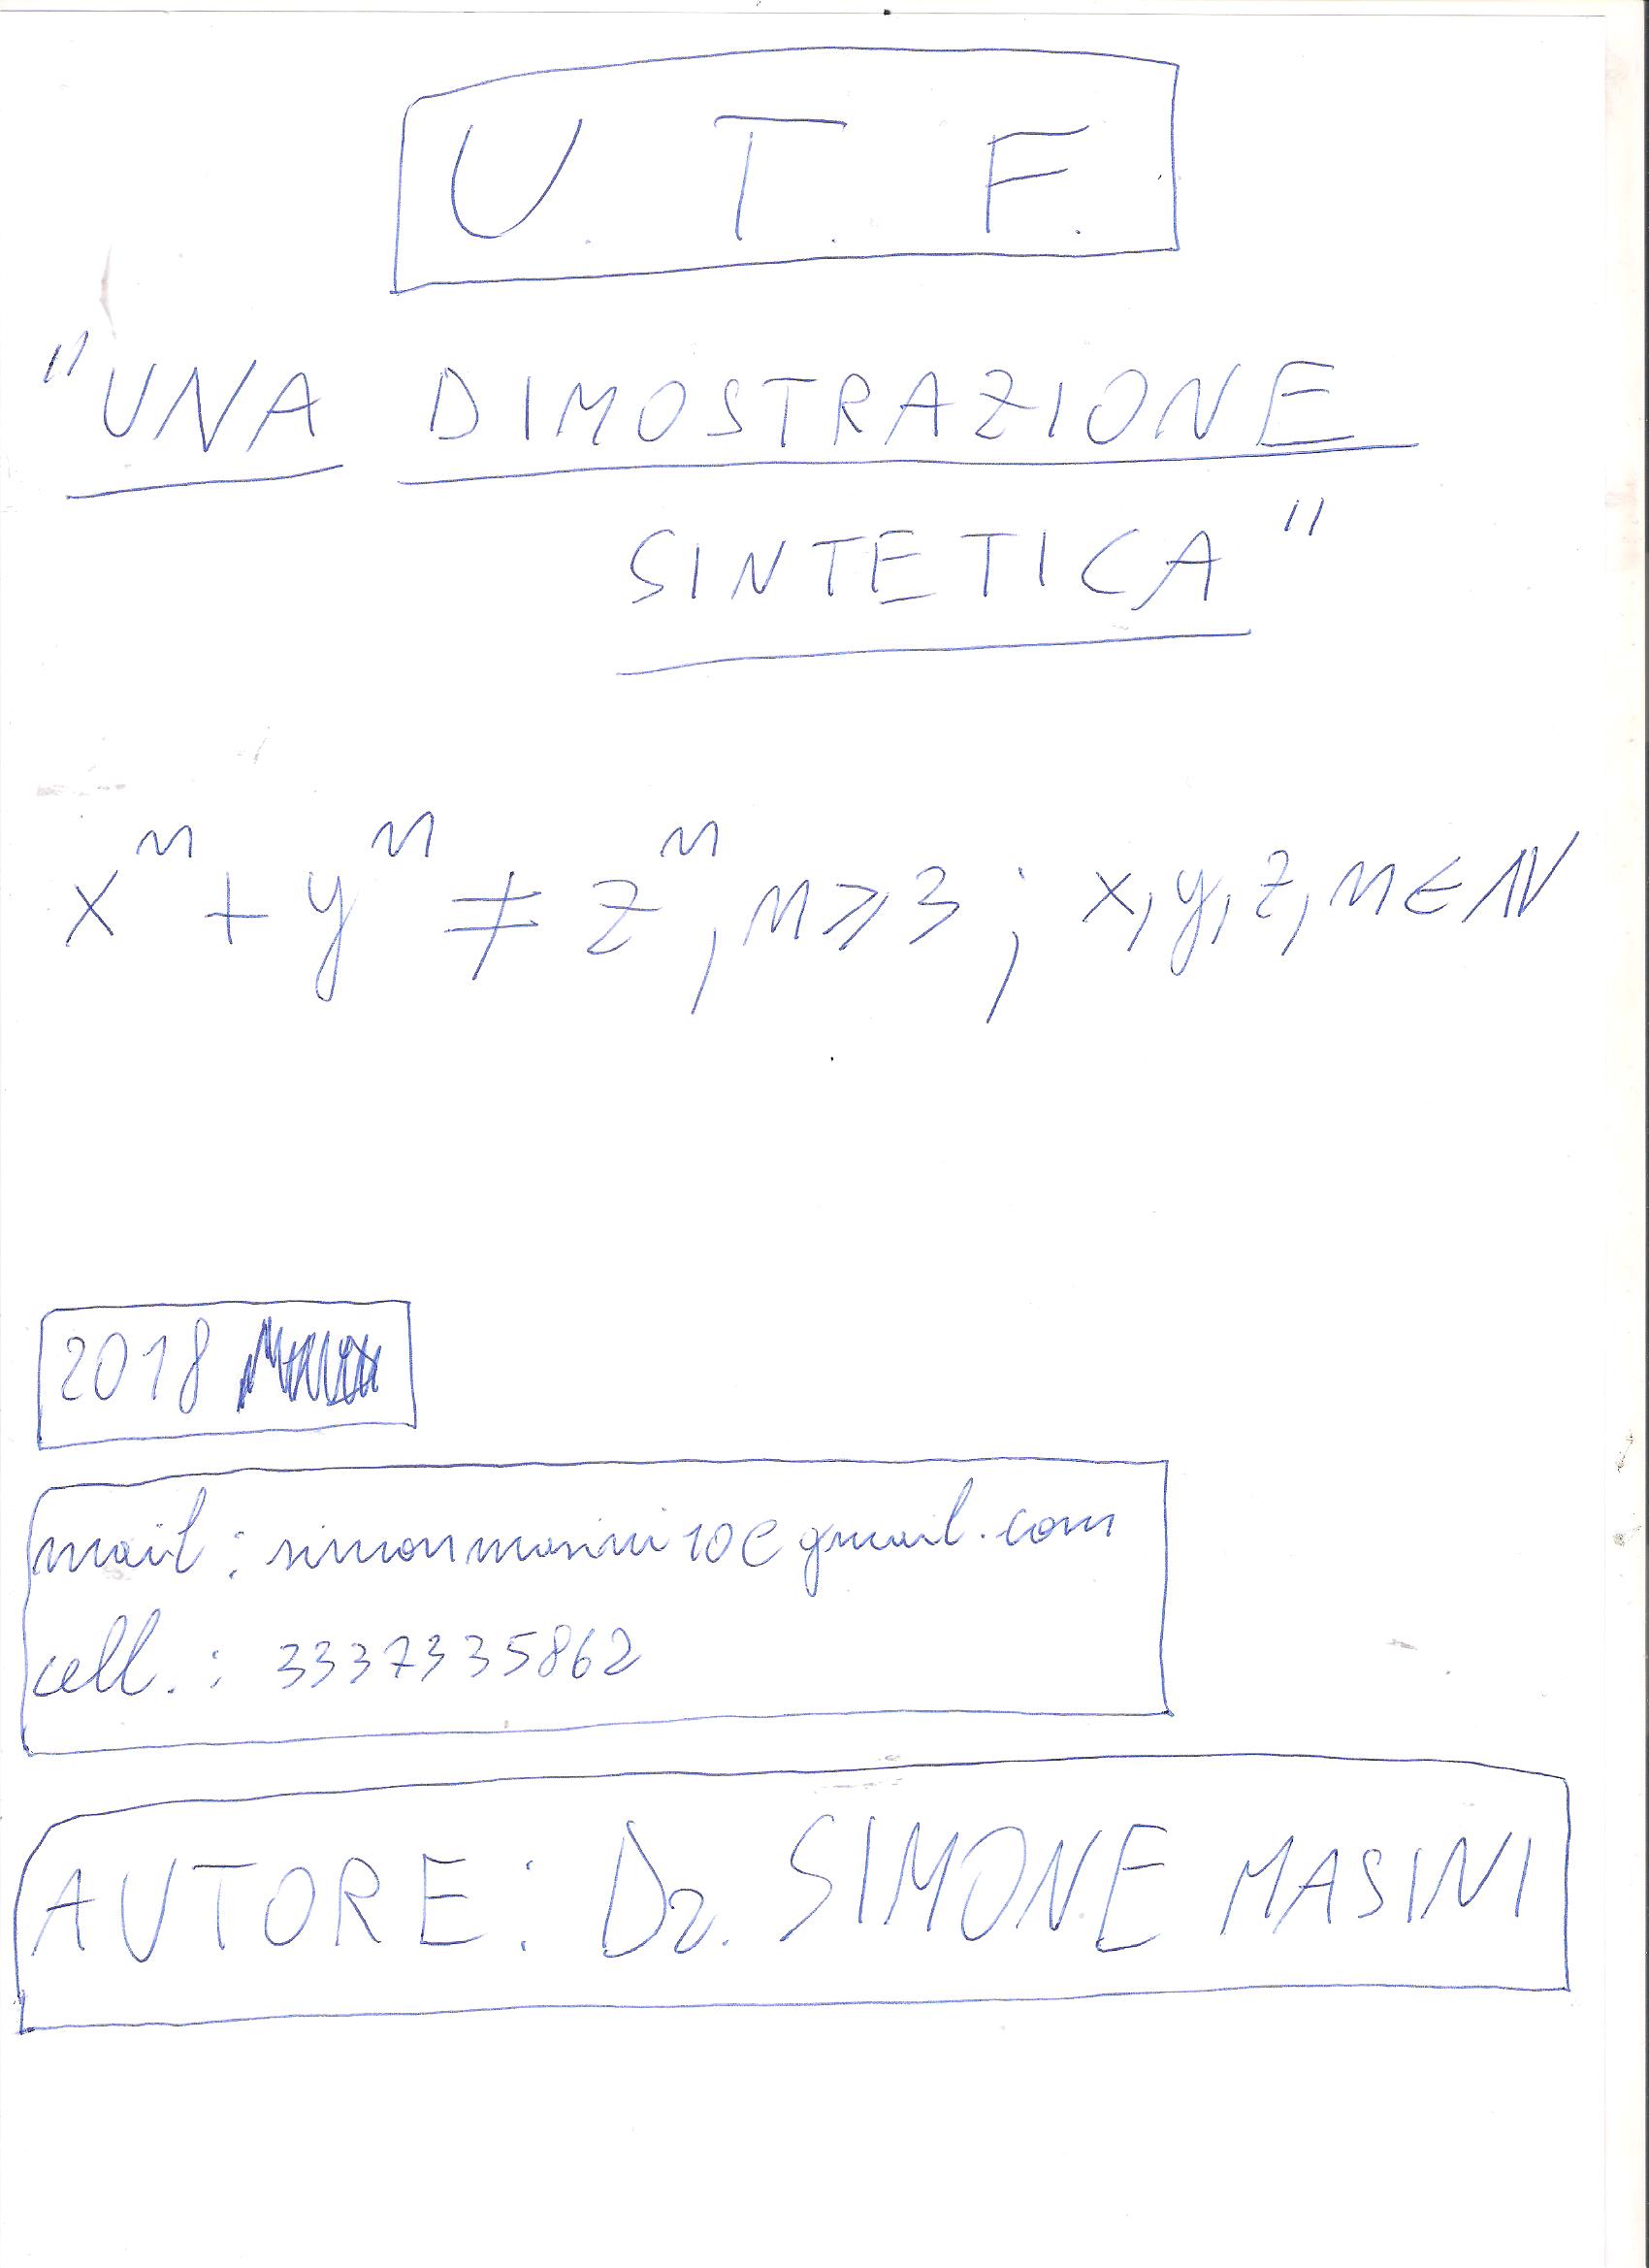 U. T. F.
"UNA DIMOSTRAZIONE
SINTETICA"
xⁿ + yⁿ ≠ zⁿ, n ⩾ 3 ; x, y, z, n ∈ ℕ
2018
mail : simonmasini10@gmail.com
cell. : 3337335862
AUTORE : Dr. SIMONE MASINI